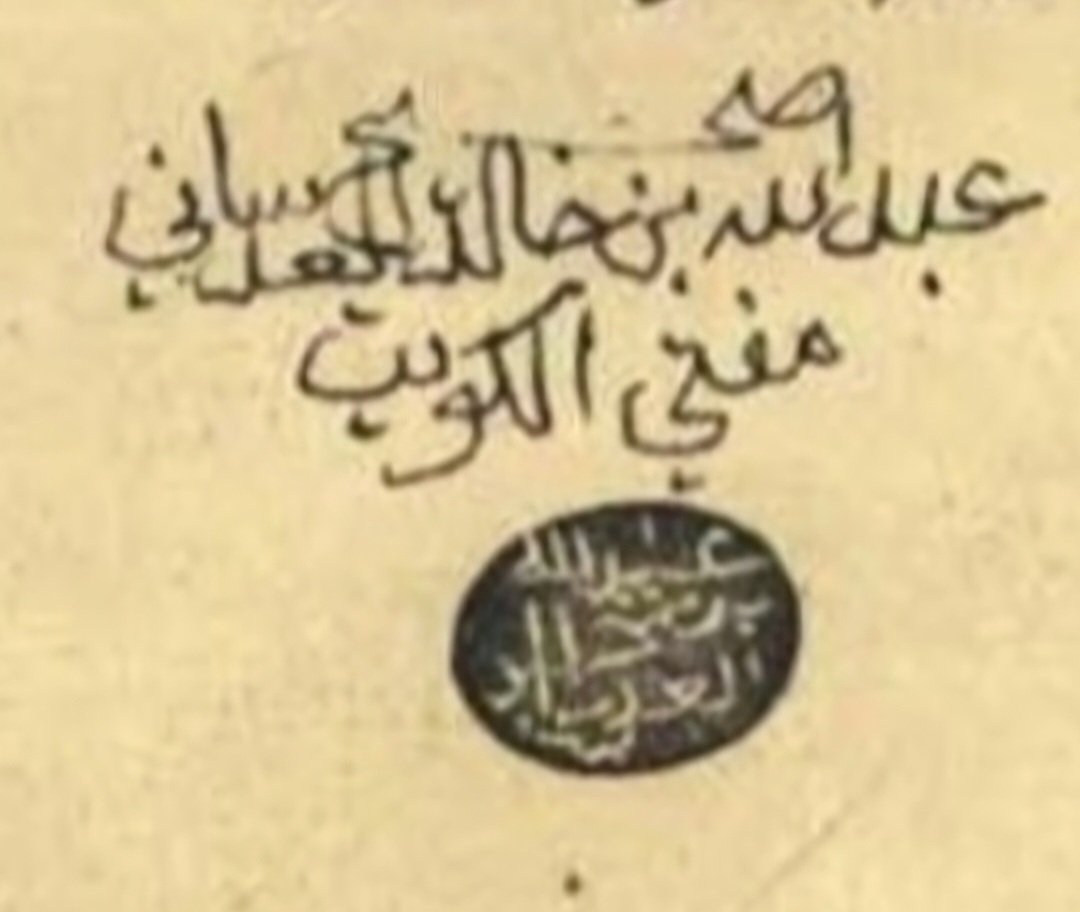 صح
عبد الله بن خالد العدساني
مفتي الكويت
عبد الله
بن خالد
العدساني